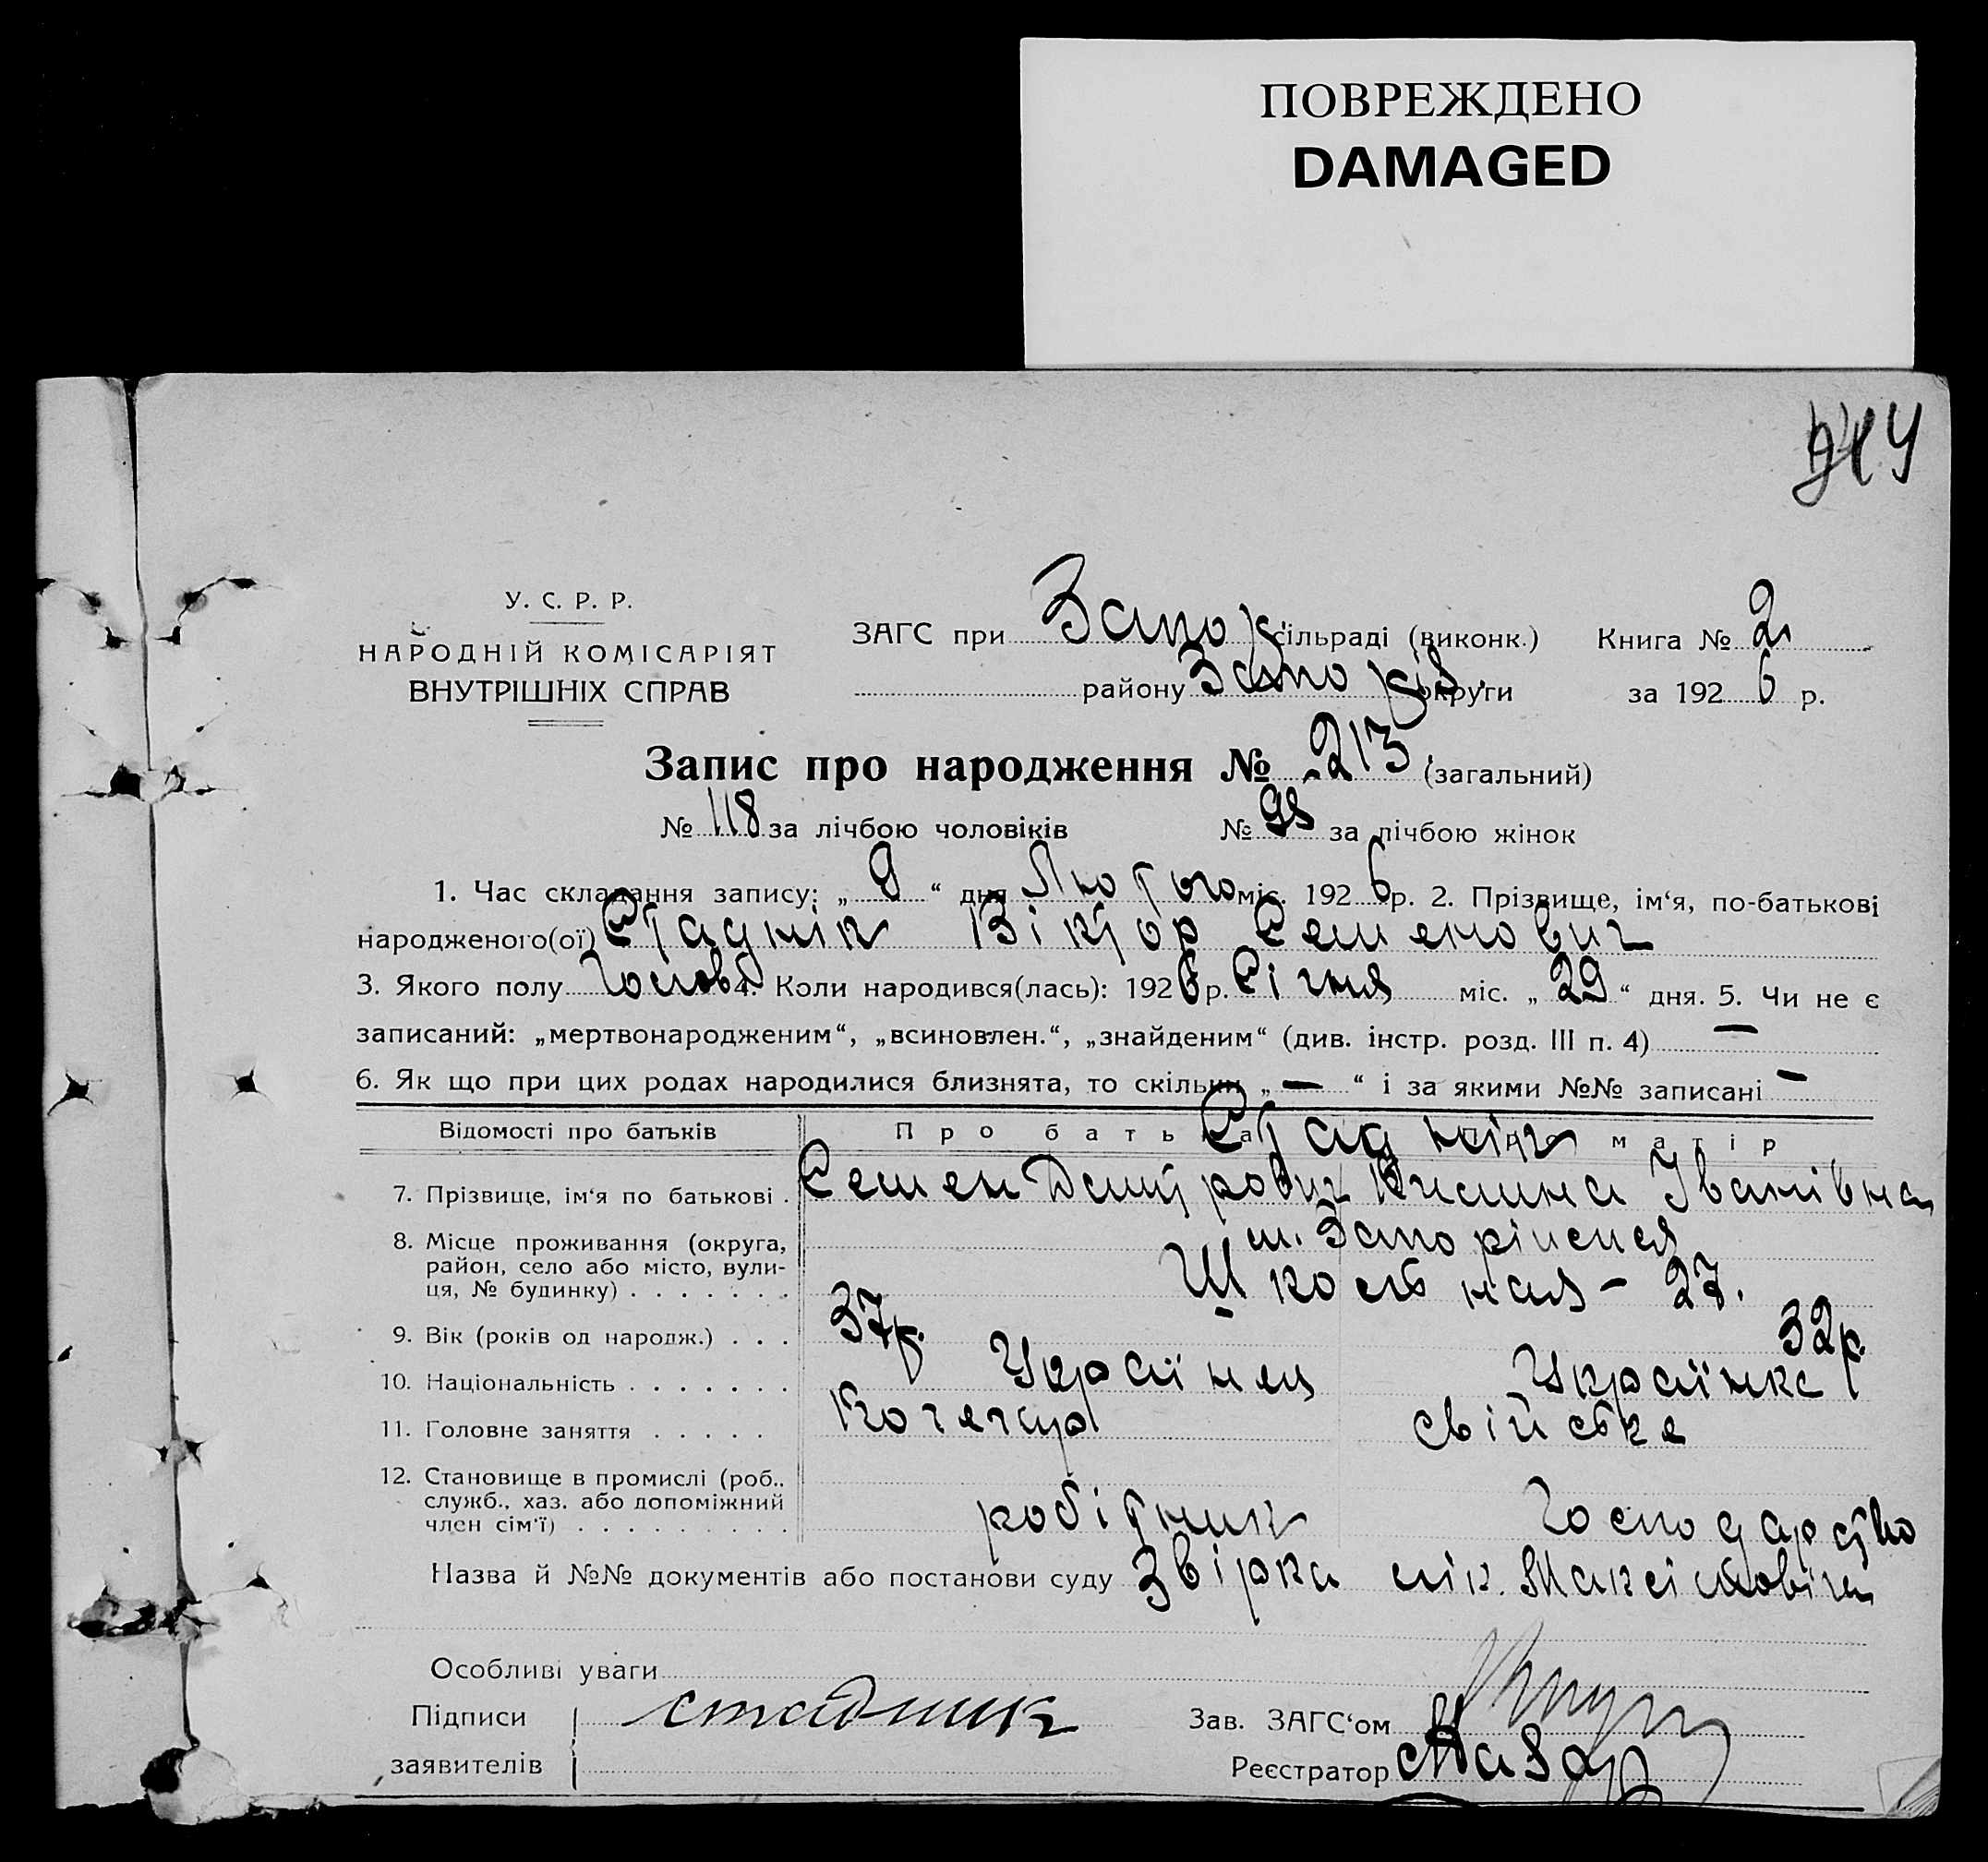 ПОВРЕЖДЕНО
DAMAGED
У. С. Р. Р.
НАРОДНІЙ КОМІСАРІЯТ
ВНУТРІШНІХ СПРАВ
ЗАГС при Запор сільраді (виконк.) Книга № 2
району Запоріз. округи за 192 6 р.
Запис про народження № 213 (загальний)
№ 118 за лічбою чоловіків № 95 за лічбою жінок
1. Час складання запису: „ 9 “ дня Лютого міс. 192 6 р. 2. Прізвище, ім‘я, по-батькові
народженого(ої) Стаднік Віктор Семенович
3. Якого полу Чолов 4. Коли народився(лась): 192 6 р. Січня міс. „ 29 “ дня. 5. Чи не є
записаний: „мертвонародженим“, „всиновлен.“, „знайденим“ (див. інстр. розд. III п. 4) —
6. Як що при цих родах народилися близнята, то скільки „ — “ і за якими №№ записані —
Відомості про батьків Про батька Стаднік матір
7. Прізвище, ім‘я по батькові . Семен Дмитрович Іванівна
8. Місце проживання (округа, м. Запоріжжя
район, село або місто, вули-
ця, № будинку) . . . . . . . Школьная – 27.
9. Вік (років од народж.) . . . 37р. 32р.
10. Національність . . . . . . . Українец Українка
11. Головне заняття . . . . . Кочегар свійське
12. Становище в промислі (роб.,
служб., хаз. або допоміжний
член сім‘ї) . . . . . . . . . робітник господарство
Назва й №№ документів або постанови суду Звірка лік. Максімовіча
Особливі уваги
Підписи стадник Зав. ЗАГС‘ом
заявителів Реєстратор Назар